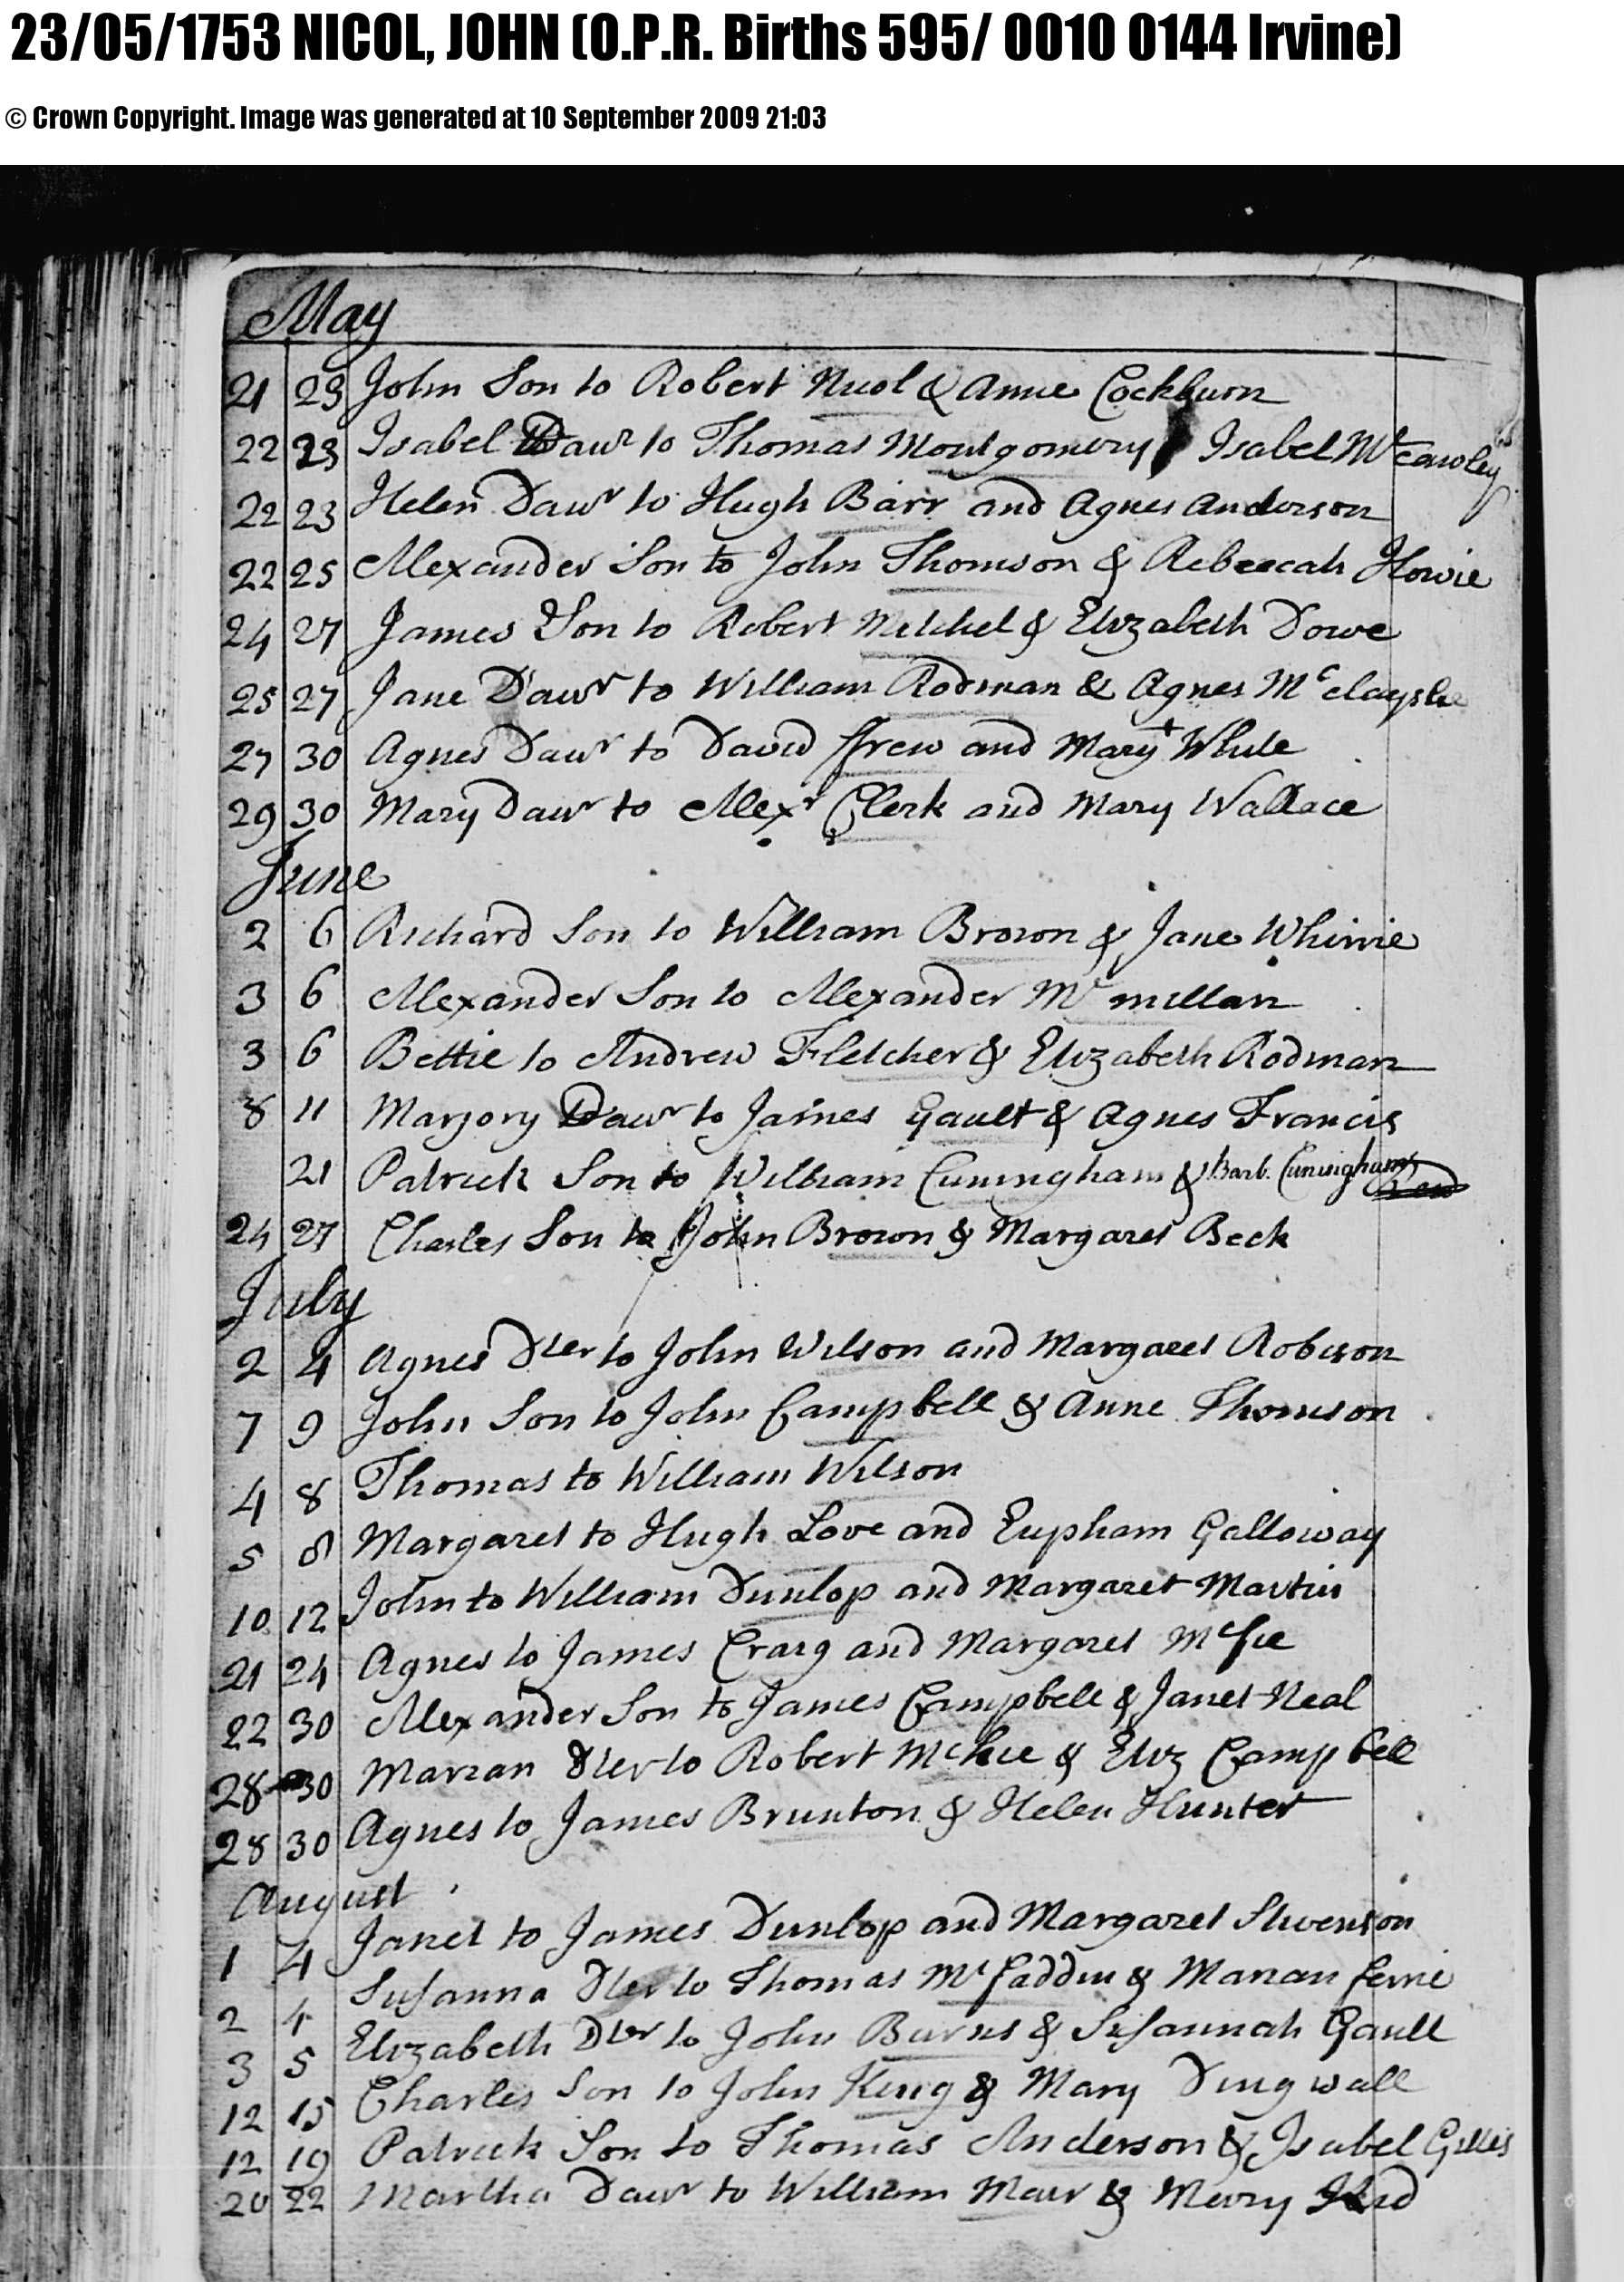 23/05/1753 NICOL, JOHN (O.P.R. Births 595/ 0010 0144 Irvine)
© Crown Copyright. Image was generated at 10 September 2009 21:03
May
21 23 John Son to Robert Nicol & Anne Cockburn
22 23 Isabel Dawr to Thomas Montgomery Isabel Mccawley
22 23 Helen Dawr to Hugh Barr and Agnes Anderson
22 25 Alexander Son to John Thomson & Rebeecah Howie
24 27 James Son to Robert Mitchel & Elizabeth Dowe
25 27 Jane Dawr to William Rodman & Agnes Mc
27 30 Agnes Dawr to David ffrew and Mary White
29 30 Mary Dawr to Alexr Clerk and Mary Wallace
June
2 6 Richard Son to William Brown & Jane Whirrie
3 6 Alexander Son to Alexander Mcmillan
3 6 Bettie to Andrew Fletcher & Elizabeth Rodman
8 11 Marjory Dawr to James Gault & Agnes Francis
21 Patrick Son to William Cuningham & Barb. Cuningham
24 27 Charles Son to John Brown & Margaret Beck
July
2 4 Agnes Dter to John Wilson and Margaret Robison
7 9 John Son to John Campbell & Anne Thomson
4 8 Thomas to William Wilson
5 8 Margaret to Hugh Love and Eupham Galloway
10 12 John to William Dunlop and Margaret Martin
21 24 Agnes to James Craig and Margaret Mcfie
22 30 Alexander Son to James Campbell & Janet Neal
28 30 Marian Dter to Robert Mckie & Eliz Campbell
28 30 Agnes to James Brunton & Helen Hunter
August
1 4 Janet to James Dunlop and Margaret Stivenson
2 4 Susanna Dter to Thomas Mcfaddin & Marian ferrie
3 5 Elizabeth Dter to John Burns & Susannah Gault
12 15 Charles Son to John King & Mary Dingwall
12 19 Patrick Son to Thomas Anderson & Isabel Gillis
20 22 Martha Dawr to William Mair & Mary